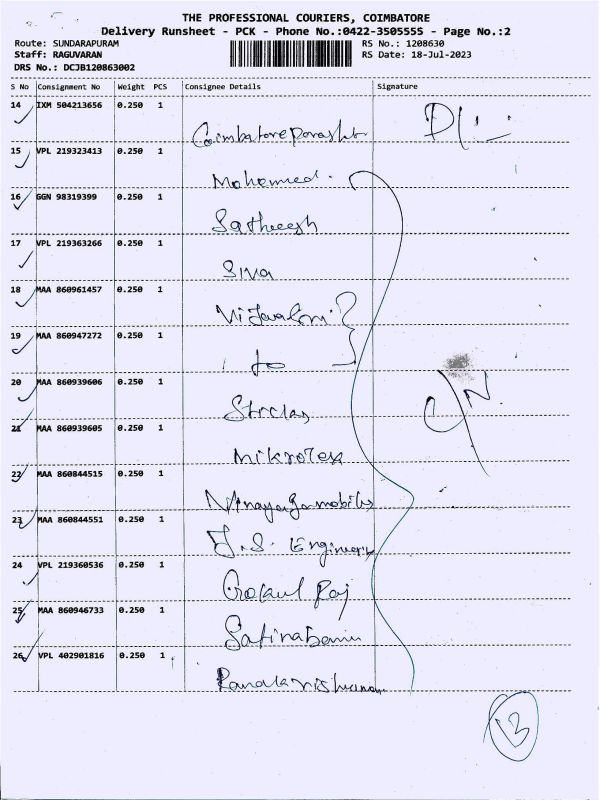 THE PROFESSIONAL COURIERS, COIMBATORE
Delivery Runsheet - PCK - Phone No.:0422-3505555 - Page No.:2
Route: SUNDARAPURAM RS No.: 1208630
Staff: RAGUVARAN RS Date: 18-Jul-2023
DRS No.: DCJB120863002
S No Consignment No Weight PCS Consignee Details Signature
14 IXM 504213656 0.250 1
Coimbatore
15 VPL 219323413 0.250 1
Mohamed
16 GGN 98319399 0.250 1
Satheesh
17 VPL 219363266 0.250 1
Siva
18 MAA 860961457 0.250 1
19 MAA 860947272 0.250 1
20 MAA 860939606 0.250 1
21 MAA 860939605 0.250 1
Mikrotex
22 MAA 860844515 0.250 1
23 MAA 860844551 0.250 1
J.S. Engineery
24 VPL 219360536 0.250 1
Gokul Raj
25 MAA 860946733 0.250 1
26 VPL 402901816 0.250 1
13